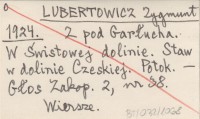 LUBERTOWICZ Zygmunt
1924. Z pod Garłucha.
W Świstowej dolinie. Staw
w dolinie Czeskiej. Potok. –
Głos Zakop. 2, nr 38.
Wiersze.